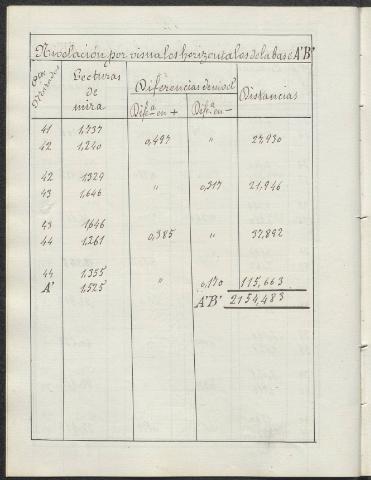 Nivelación por visuales horizontales de la base A'B'
Lecturas de mira Diferencias de nivel Distancias
Difª en + Difª en -
41 1,737
42 1,240 0,497 " 27,930
42 1,329
43 1,646 " 0,317 21,946
43 1,646
44 1,261 0,385 " 37,892
44 1,355
A' 1,525 " 0,170 115,663
A'B' 2154,483